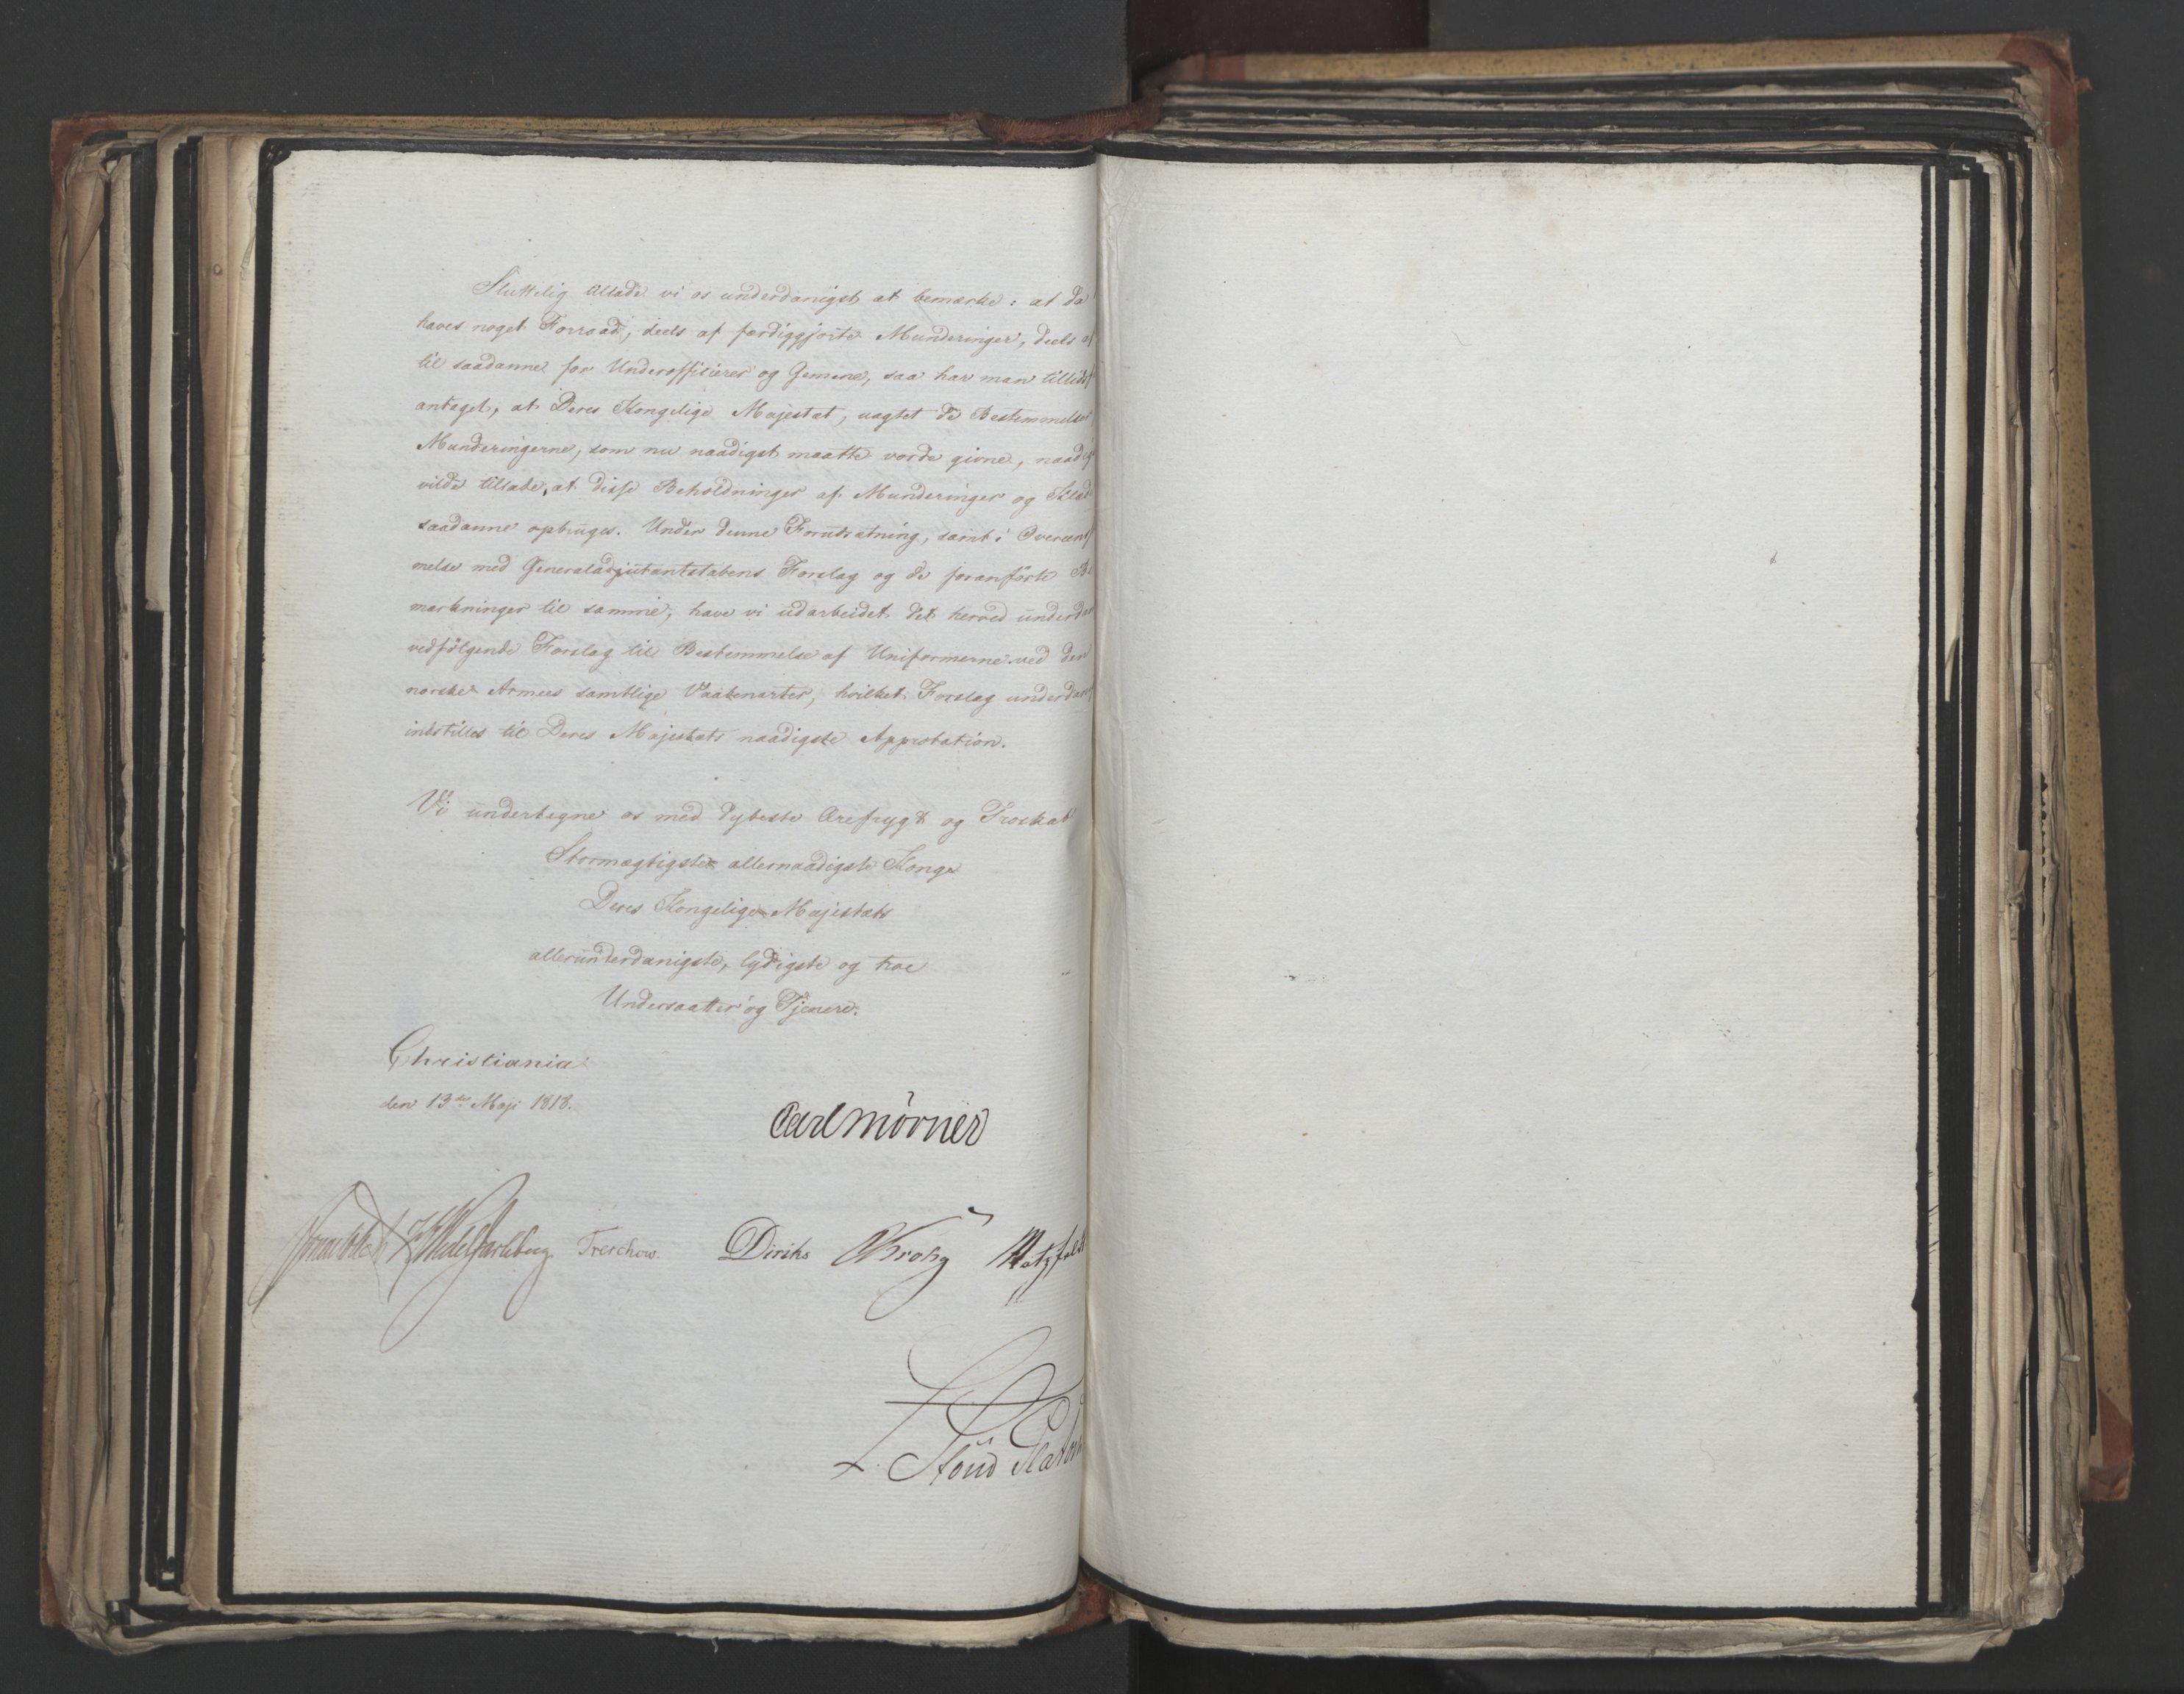 Sluttelig tillade vi os underdanigst at bemærke: at da
haves noget Forraad, deels af færdiggjorte Munderinger, deels af
til saadanne for Underofficierer og Gemene, saa har man tillids
antaget, at Deres Kongelige Majestæt, uagtet de Bestemmelser
Munderingerne, som nu naadigst maatte vorde givne, naadig
vilde tillade, at disse Beholdninger af Munderinger og Klæd
saadanne opbruges. Under denne Forudsætning, samt i Overeens
melse med Generaladjutantstabens Forslag og de foranførte Be
mærkninger til samme, have vi udarbeidet det herved underda
vedfølgende Forslag til Bestemmelse af Uniformerne ved den
norske Armees samtlige Vaabenarter, hvilket Forslag underdan
indstilles til Deres Majestæts naadigste Approbation.
Vi undertegne os med dybeste Ærefrygt og Troskab
Stormægtigste allernaadigste Konge
Deres Kongelige Majestæts
allerunderdanigste, lydigste og troe
Undersaatter og Tjenere.
Christiania
den 13de Maji 1818.
Carl Mörner
Sommerhielm HWedelJarlsberg Treschow. Diriks CKrohg Motzfeldt